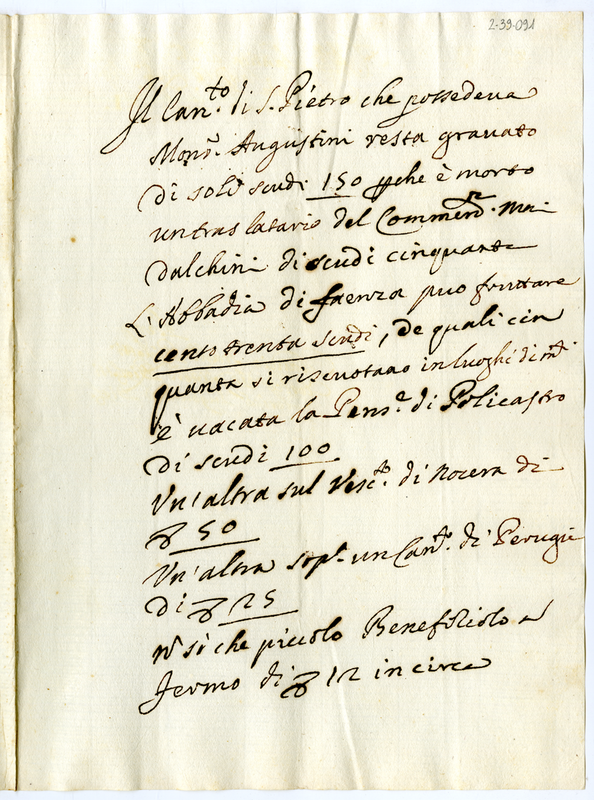 2-39-091
Il Can.to di S. Pietro che possedeva
Mons.r Augustini resta gravato
di soli scudi 150 pche è morto
un traslatario del Commend.r Mai-
dalchini di scudi cinquanta
L'Abbadia di faenza può fruttare
cento trenta scudi, de quali cin
quanta si riscuotano in luoghi di m.ti
è vacata la Pens.e di Policastro
di scudi 100
Un'altra sul Vesc.to di Nocera di
50
Un'altra sop.a un Can.to di Perugia
di 25
si che piccolo Beneficiolo a
fermo di 12 in circa